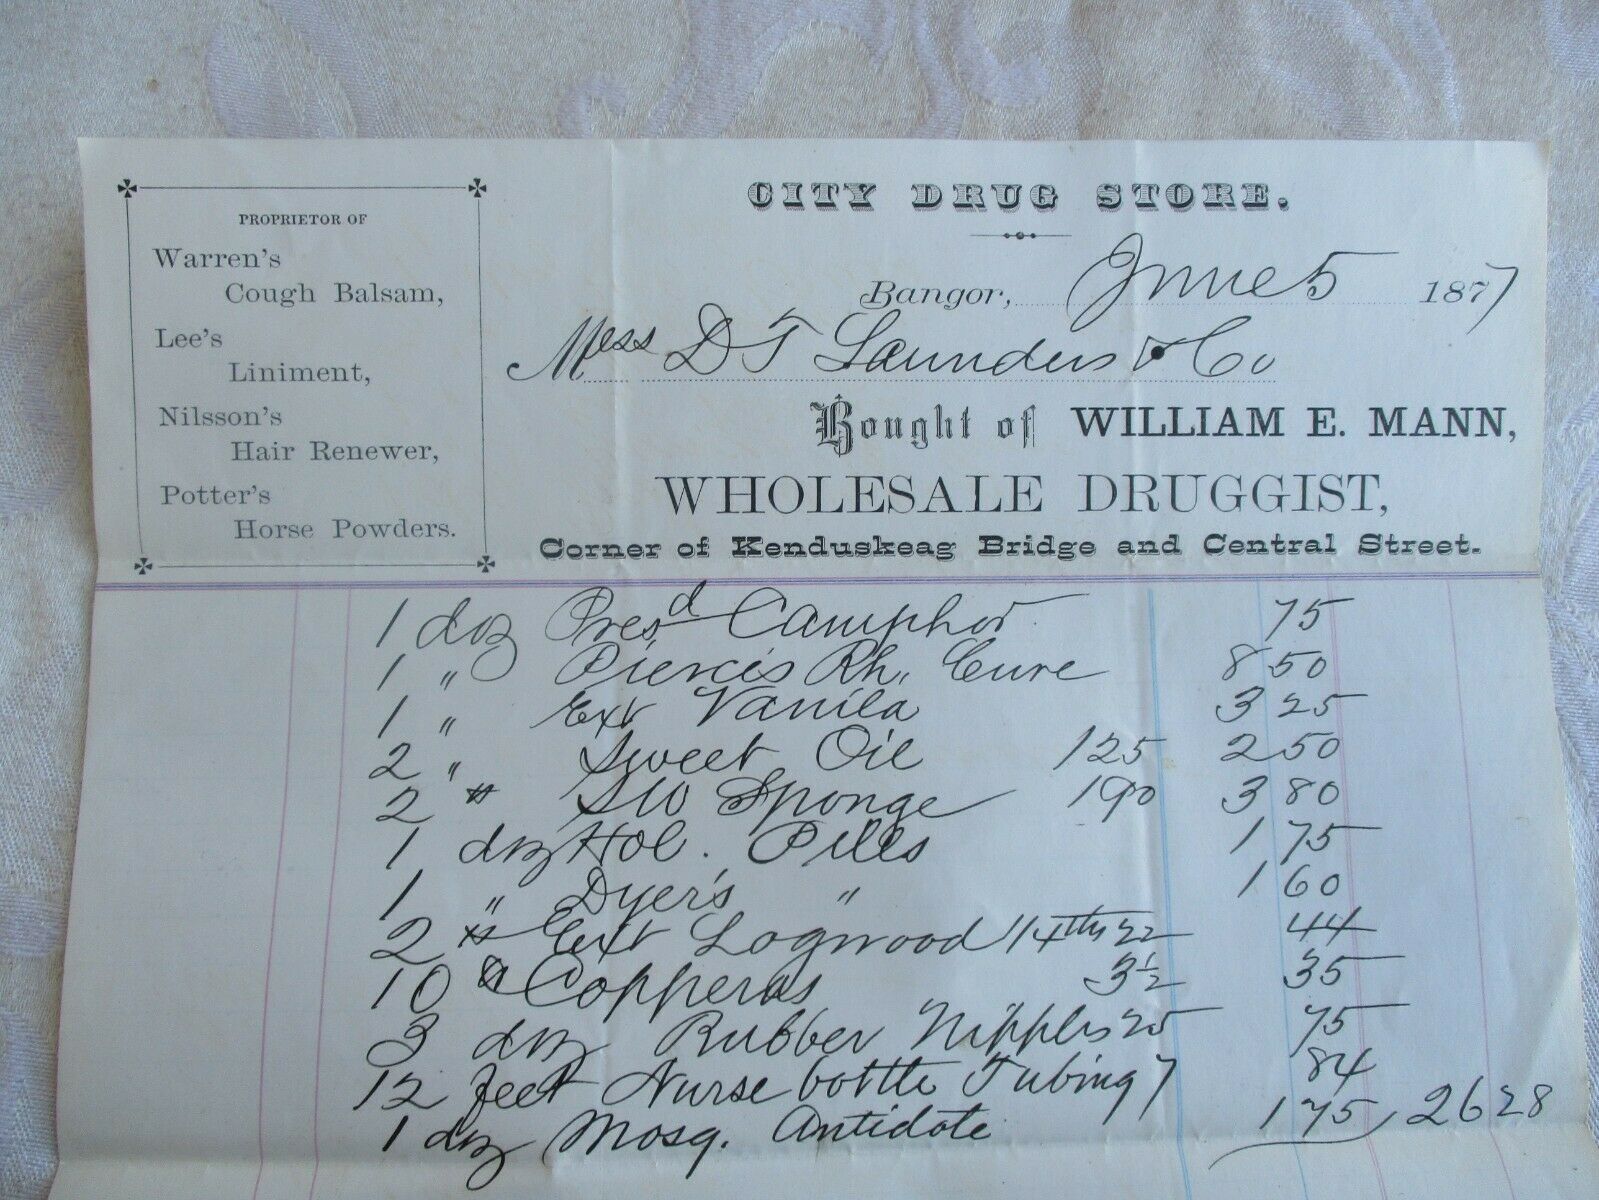 PROPRIETOR OF
Warren's
Cough Balsam,
Lee's
Liniment,
Nilsson's
Hair Renewer,
Potter's
Horse Powders.
CITY DRUG STORE.
Bangor, June 5 1877
Mess D T Saunders & Co
Bought of WILLIAM E. MANN,
WHOLESALE DRUGGIST,
Corner of Kenduskeag Bridge and Central Street.
1 doz Presd Camphor 75
1 " Pierces Rh. Cure 8 50
1 " Ext Vanila 3 25
2 " Sweet Oil 125 2 50
2 # SW Sponge 190 3 80
1 doz Hol. Pills 1 75
1 " Dyer's " 1 60
2 # Ext Logwood 22 44
10 # Copperas 3 1/2 35
3 doz Rubber Nipples 25 75
12 feet Nurse bottle Tubing 7 84
1 doz Mosq. Antidote 1 75 26 28